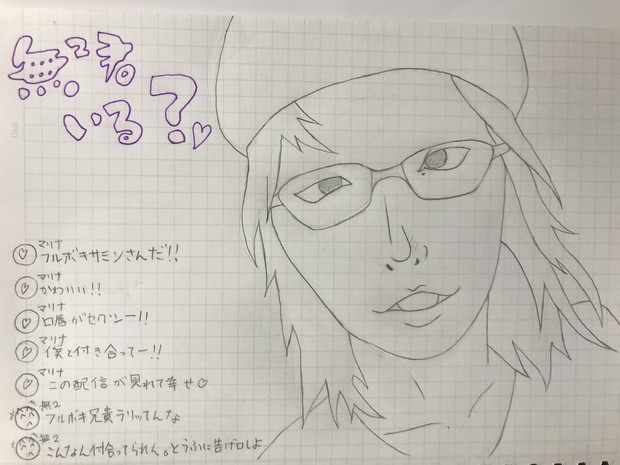 無²ちね
いる?♡
マリナ
フルボキサミンさんだ!!
マリナ
かわいい!!
マリナ
口唇がセクシー!!
マリナ
僕と付き合ってー!!
マリナ
この配信が見れて幸せ♡
無2
フルボキ兄貴ラリッてんな
無2
こんなん付合ってられん。とうふに告げ口しよ